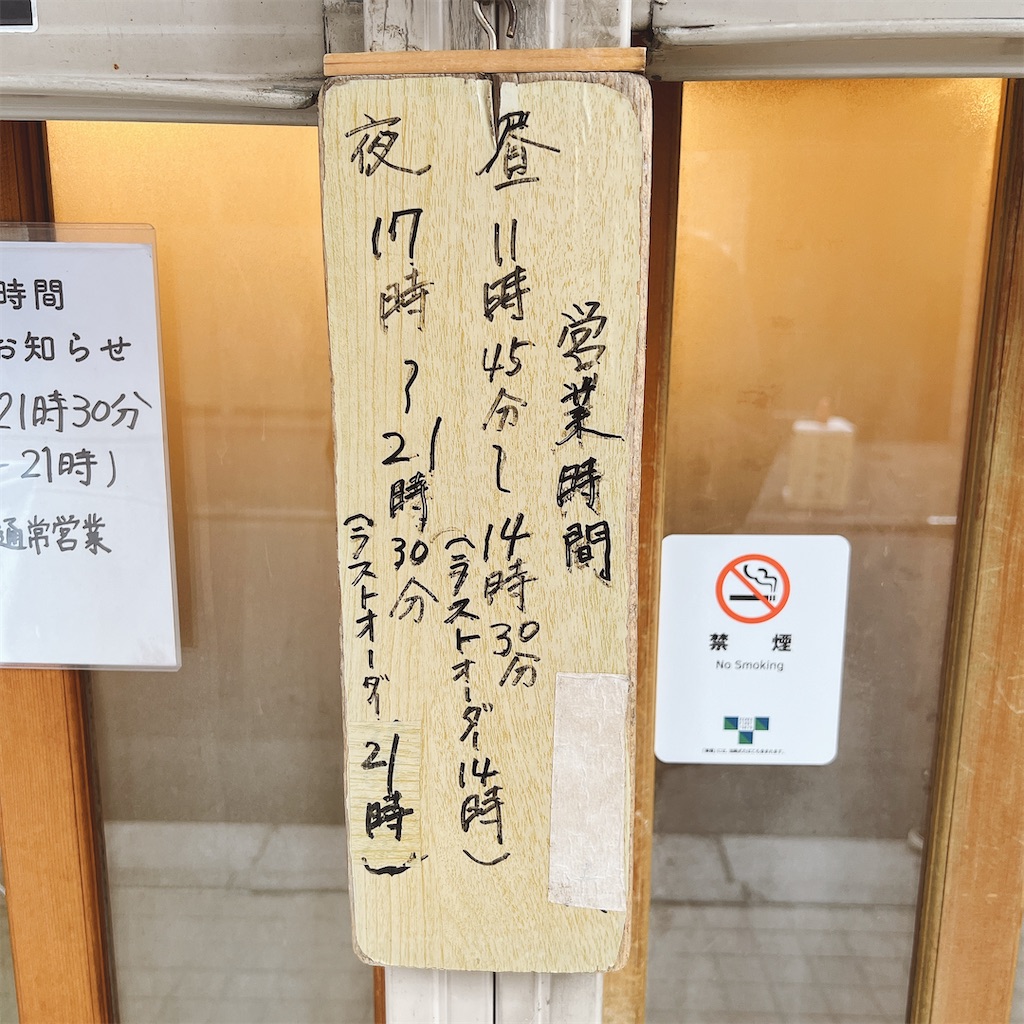 営業時間
昼 11時45分〜14時30分
(ラストオーダー14時)
夜 17時〜21時30分
(ラストオーダー21時)
時間
お知らせ
21時30分
21時)
通常営業
禁煙
No Smoking